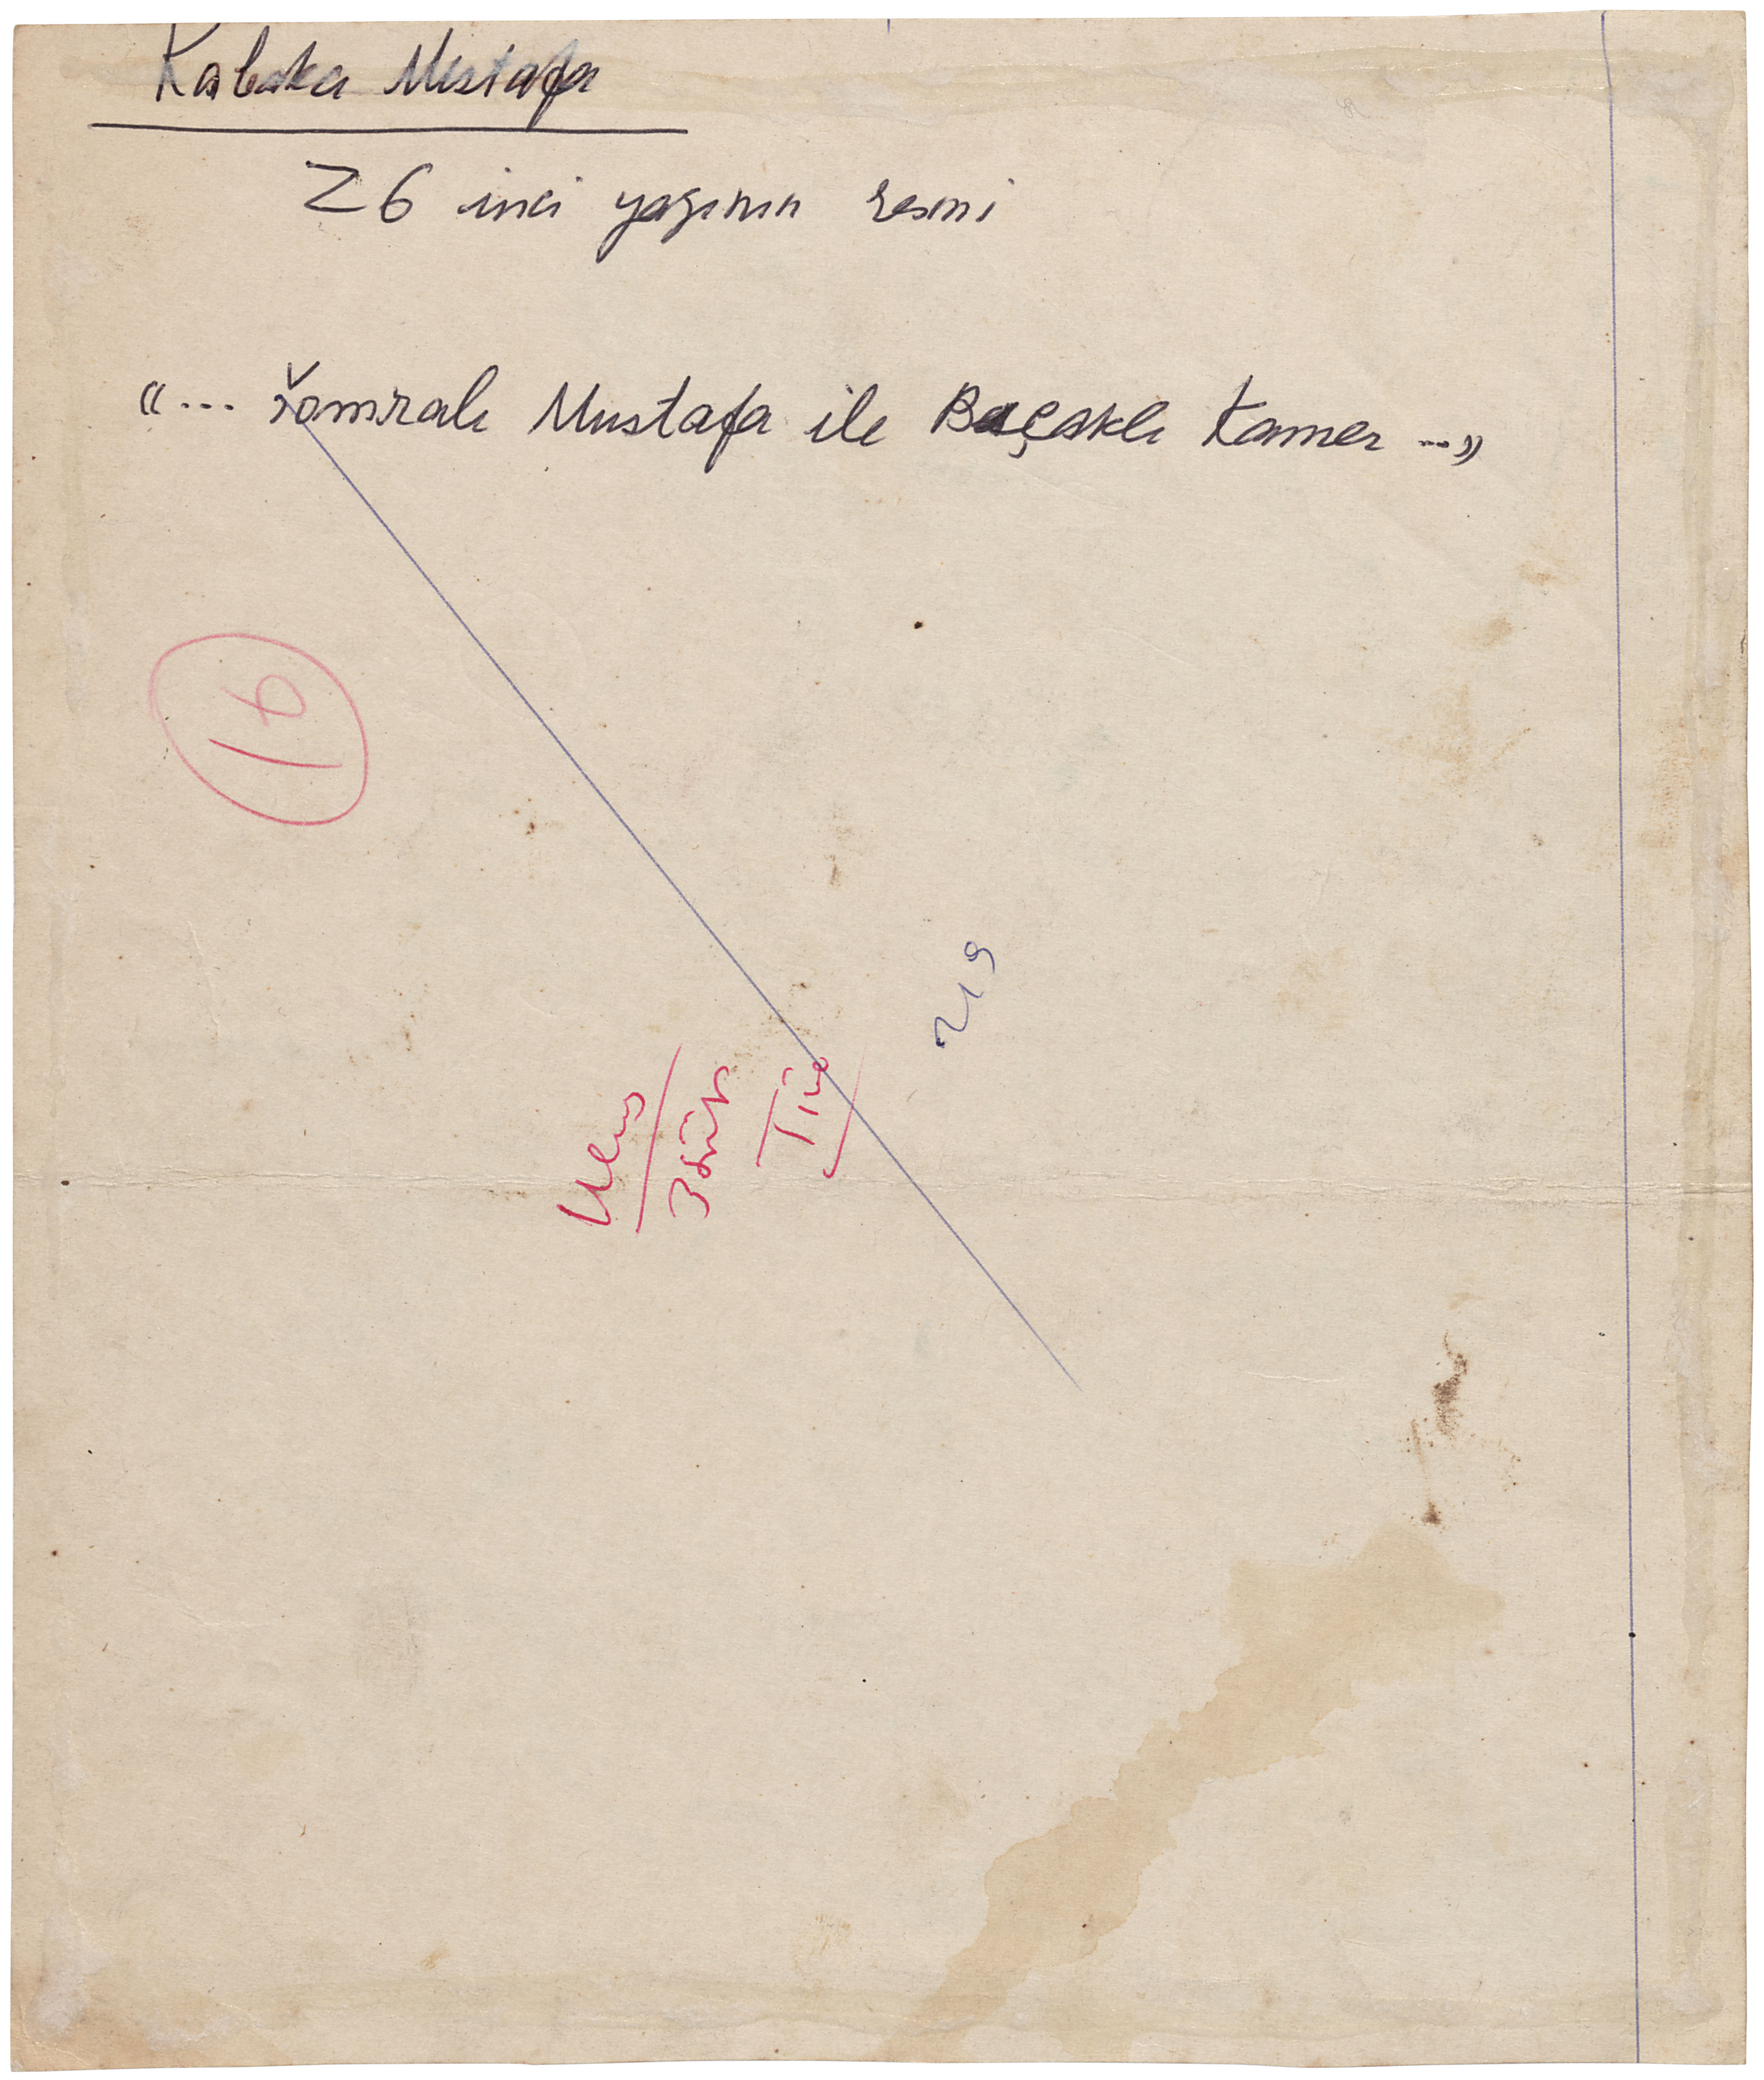 Kabaka Mustafa
26 ıncı yazının resmi
«... Şamralı Mustafa ile Bıçaklı Kamer ...»
16
219
Ulus
3 sütun